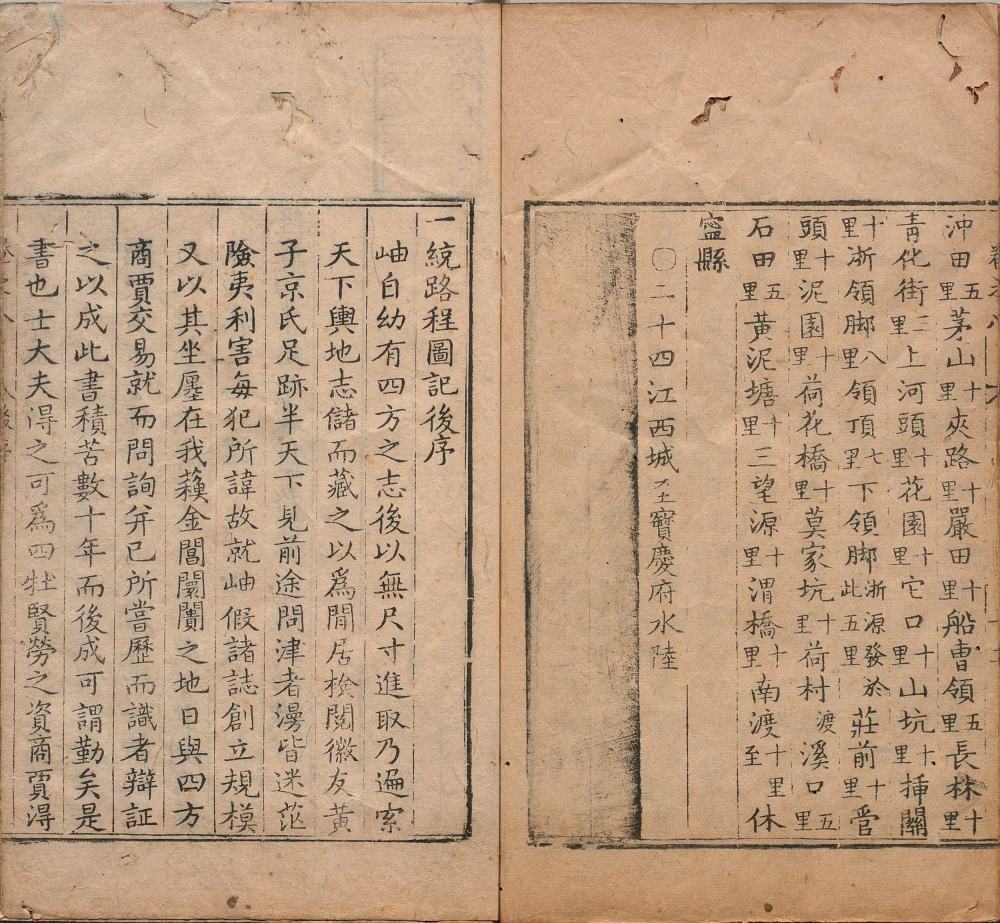 沖田五里茅山十里夾路十里嚴田十里船曹領五里長林十里
靑化街二里上河頭十里花園十里它口十里山坑十里揷關
十里浙領脚八里領頂七里下領脚浙源發於此五里莊前十里管
頭十里泥園十里荷花橋十里莫家坑十里荷村渡溪口五里
石田五里黃泥塘十里三望源十里渭橋十里南渡十里至休
寍縣
〇二十四江西城至寶慶府水陸
一統路程圖記後序
岫自幼有四方之志後以無尺寸進取乃遍索
天下輿地志儲而藏之以爲閒居檢閱徽友黃
子京氏足跡半天下見前途問津者漫皆迷茫
險夷利害每犯所諱故就岫假諸誌創立規模
又以其坐廛在我蘓金閶闤闠之地日與四方
商賈交易就而問詢幷已所嘗歷而識者辯証
之以成此書積苦數十年而後成可謂勤矣是
書也士大夫得之可爲四牡賢勞之資商賈得